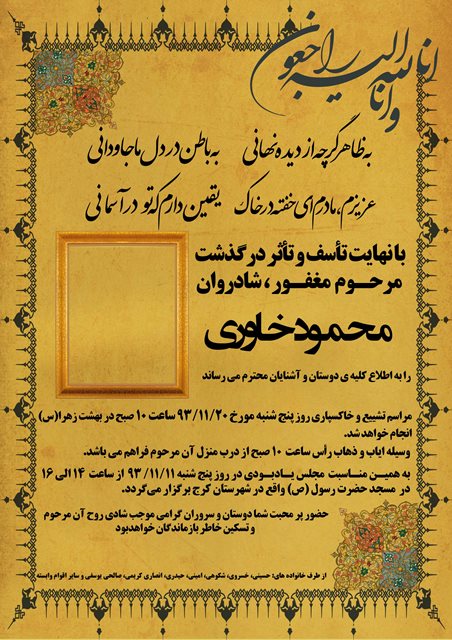 انا لله و انا الیه راجعون
به ظاهر گرچه از دیده نهانی به باطن در دل ما جاودانی
عزیزم، مادرم ای خفته در خاک یقین دارم که تو در آسمانی
با نهایت تأسف و تأثر در گذشت
مرحوم مغفور، شادروان
محمود خاوری
را به اطلاع کلیه ی دوستان و آشنایان محترم می رساند
مراسم تشییع و خاکسپاری روز پنج شنبه مورخ ۹۳/۱۱/۲۰ ساعت ۱۰ صبح در بهشت زهرا(س)
انجام خواهد شد.
وسیله ایاب و ذهاب رأس ساعت ۱۰ صبح از درب منزل آن مرحوم فراهم می باشد.
به همین مناسبت مجلس یادبودی در روز پنج شنبه ۹۳/۱۱/۱۱ از ساعت ۱۴ الی ۱۶
در مسجد حضرت رسول (ص) واقع در شهرستان کرج برگزار می‌گردد.
حضور پر محبت شما دوستان و سروران گرامی موجب شادی روح آن مرحوم
و تسکین خاطر بازماندگان خواهدبود
از طرف خانواده های: حسینی، خسروی، شکوهی، امینی، حیدری، انصاری کریمی، صالحی یوسفی و سایر اقوام وابسته